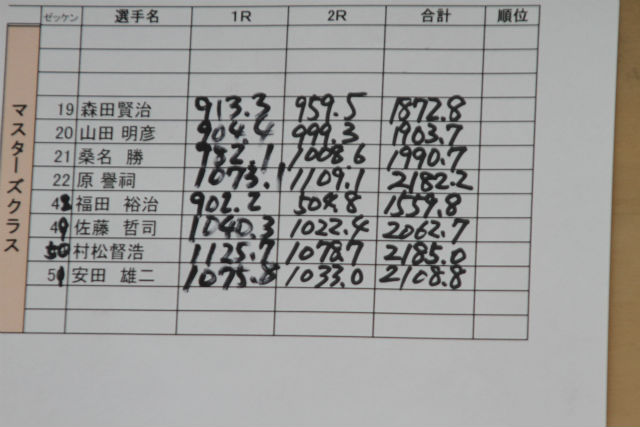 ゼッケン 選手名 1R 2R 合計 順位
マスターズクラス
19 森田賢治 913.3 959.5 1872.8
20 山田 明彦 904.4 999.3 1903.7
21 桑名 勝 982.1 1008.6 1990.7
22 原 誉祠 1073.1 1109.1 2182.2
48 福田 裕治 902.2 1559.8
49 佐藤 哲司 1040.3 1022.4 2062.7
50 村松督浩 1125.7 1078.7 2185.0
51 安田 雄二 1075.8 1033.0 2108.8